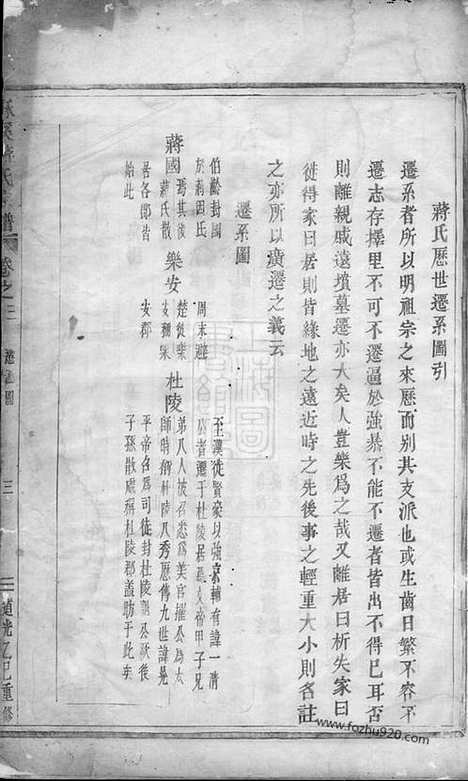 蔣氏歷世遷系圖引
遷系者所以明祖宗之來歷而别其支派也或生齒日繁不容不
遷志存擇里不可不遷逼於強暴不能不遷者皆出不得已耳否
則離親戚遠墳墓遷亦大矣人豈樂為之哉又離居曰析失家曰
徙得家曰居則皆緣地之遠近時之先後事之輕重大小則各註
之亦所以廣遷之義云
遷系圖
伯齡封國
於蔣因氏
蔣國
焉其後
蔣氏散
居各郡皆
始此
樂安
周末避
楚徙樂
安稱樂
安郡
杜陵
至漢徙賢豪以強京輔有諱一清
公者遷于杜陵居
帝甲子兄
弟八人被召悉為美官摧公為太
師時稱杜陵八秀歷傳九世諱晃
平帝召為司徒封杜陵公厥後
子孫散處稱杜陵郡蓋昉于此矣
氏
譜
卷之三
遷系圖
三
道光乙巳重修
www.fozhu920.com